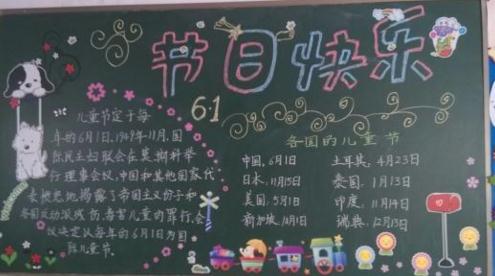 节日快乐
6.1
儿童节定于每
年的6月1日。1949年11月,国
际民主妇联会在莫斯科举
行理事会议,中国和其他国家代
表愤怒地揭露了帝国主义份子和
各国反动派残伤、毒害儿童的罪行,会
议决定以每年的6月1日为国
际儿童节。
各国的儿童节
中国,6月1日 土耳其,4月23日
日本,11月15日 泰国,1月13日
美国,5月1日 印度,11月14日
新加坡,10月1日 瑞典,12月13日